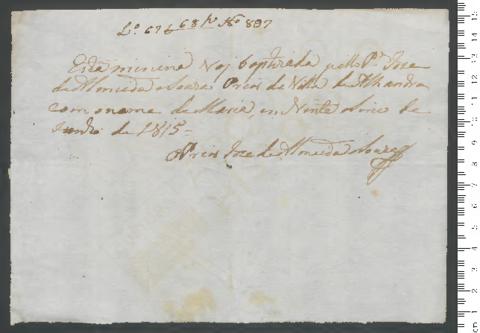 Lº 67 f 68 Nº 897
Esta menina vay baptizada pello Pe Joze
de Almeida Soares Prior da Villa de Alhandra
com o nome de Maria, em Vinte e sinco de
Junho de 1815=
O Prior Joze de Almeida Soares